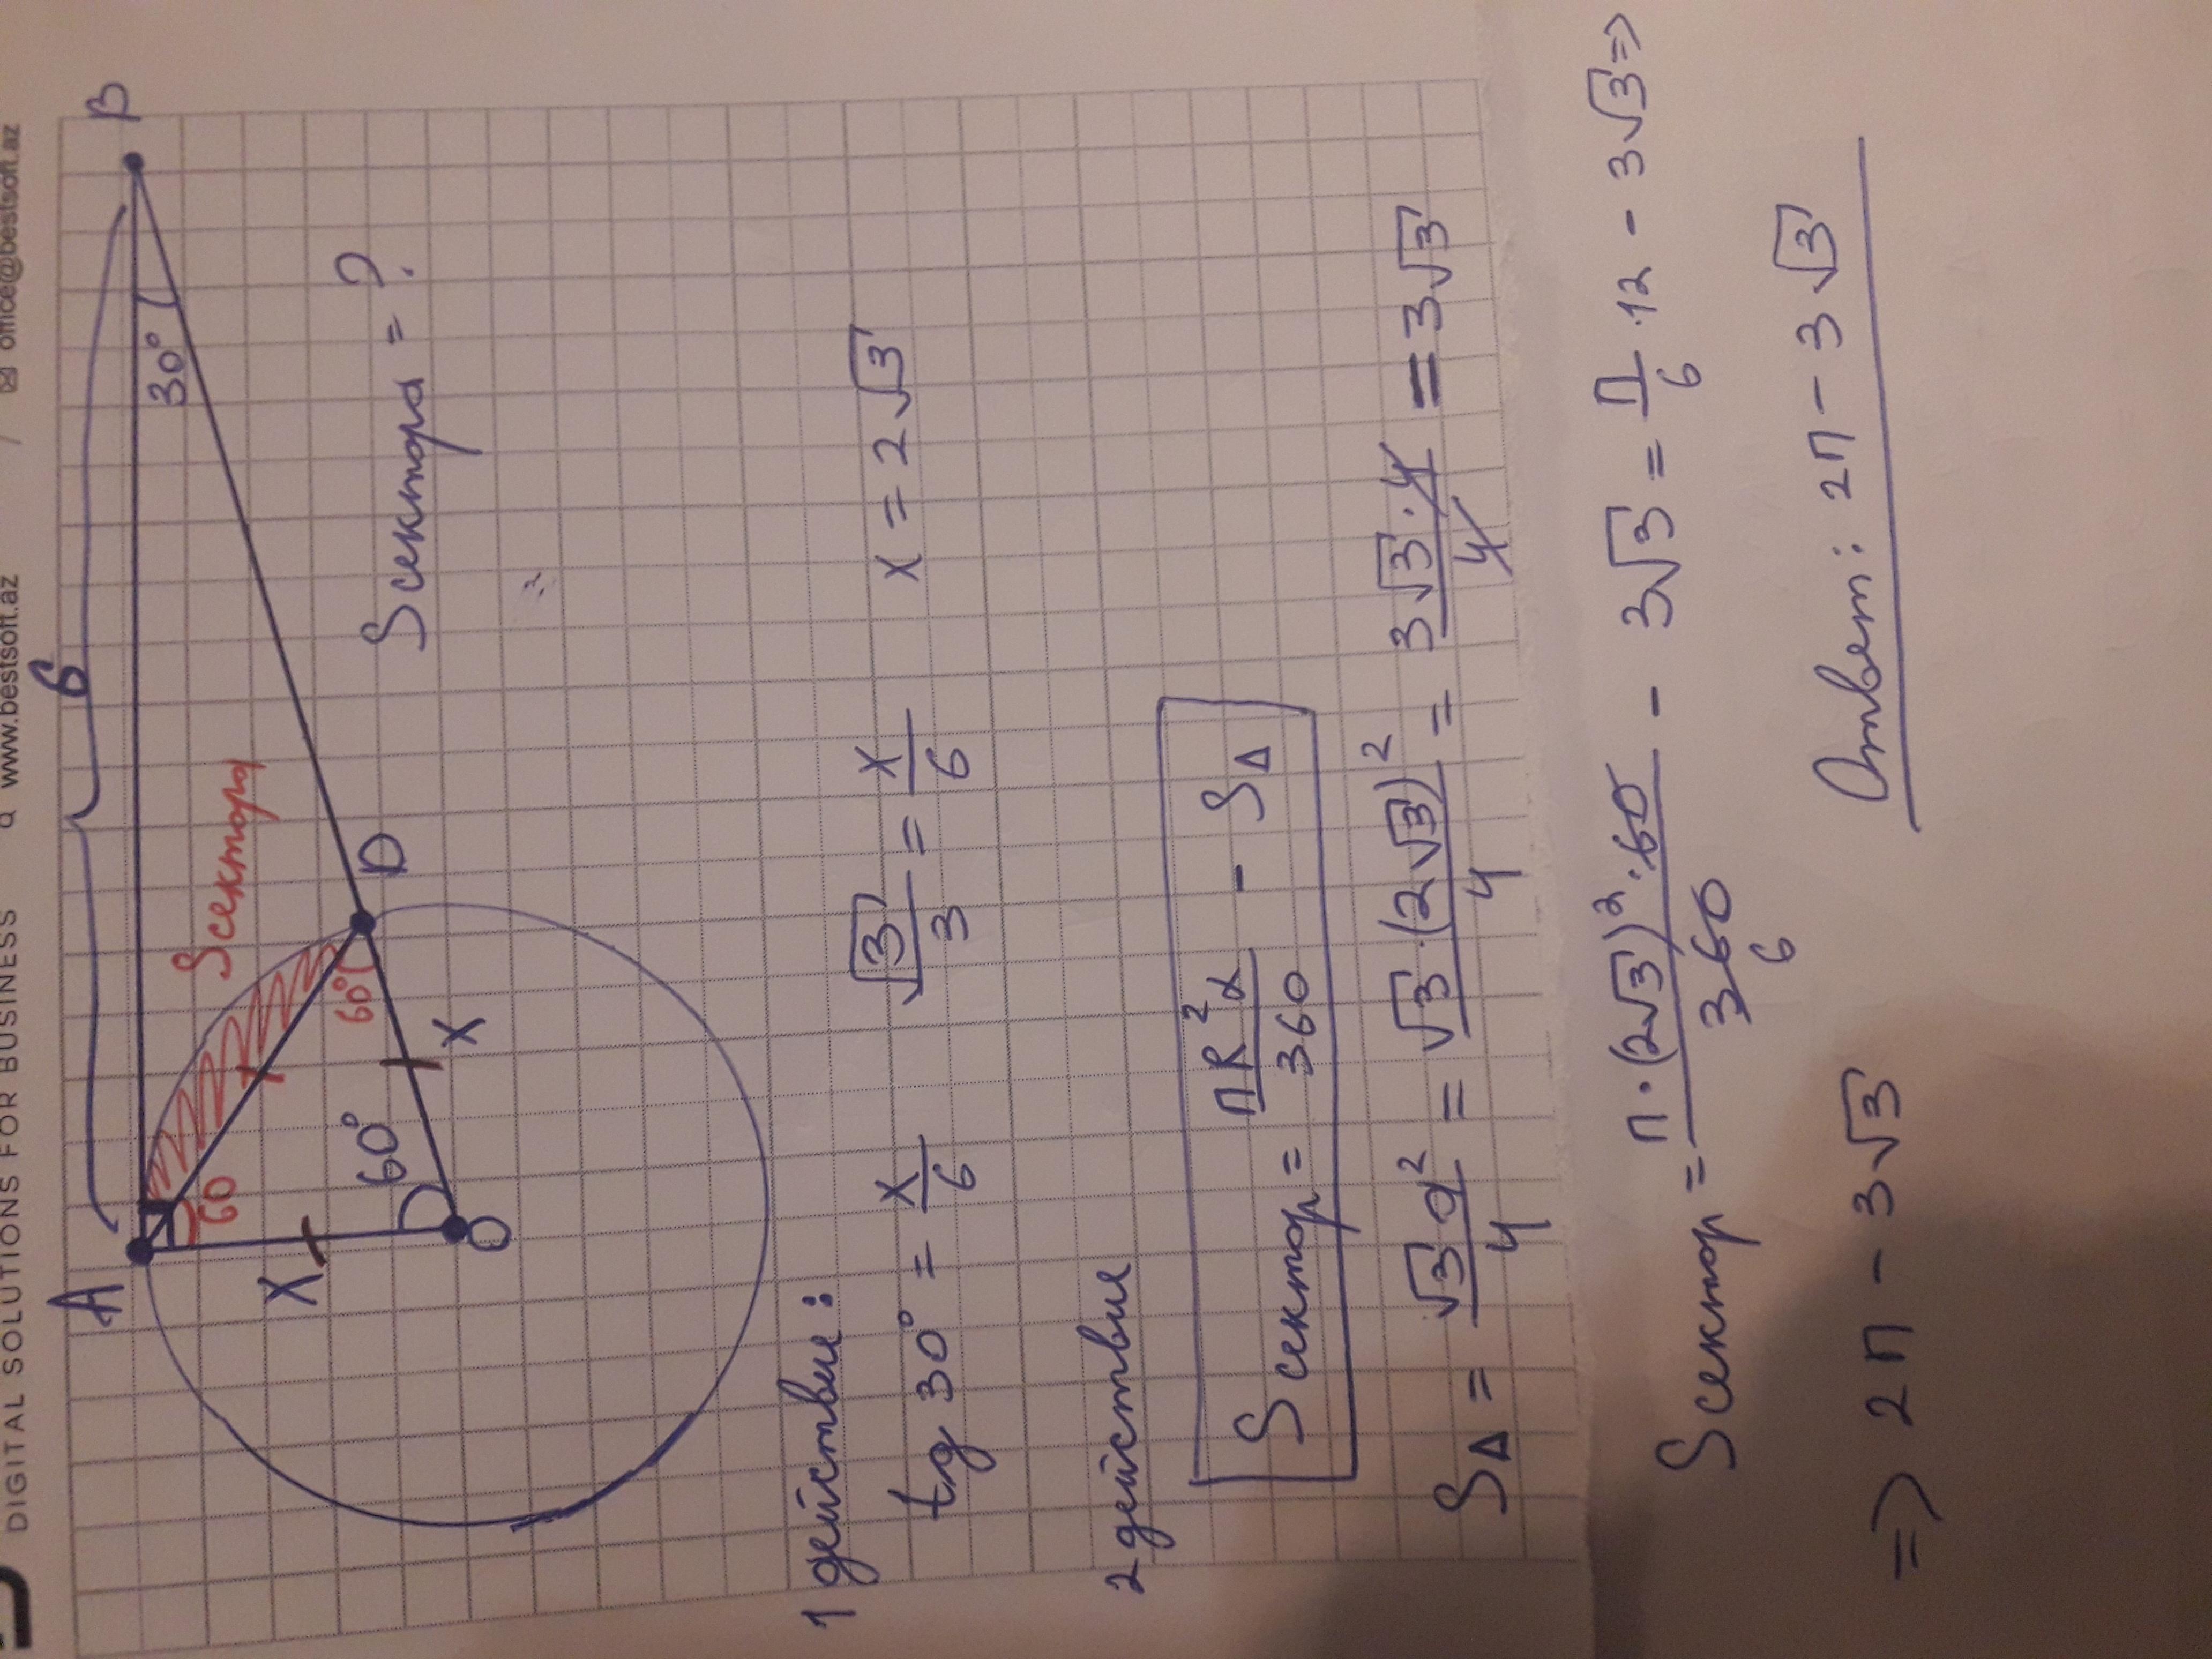 DIGITAL SOLUTIONS FOR BUSINESS www.bestsoft.az / office@bestsoft.az
6
A B
30°
Sсектора
60
60°
D
X
60°
X
O
Sсектора = ?
1 действие:
tg 30° = x/6 √3/3 = x/6 x = 2√3
2 действие
Sсектор = пR²α/360 - S△
S△ = √3a²/4 = √3·(2√3)²/4 = 3√3·4/4 = 3√3
Sсектор = п·(2√3)²·60/360 - 3√3 = п/6 ·12 - 3√3 =>
6
=> 2п - 3√3
Ответ: 2п - 3√3